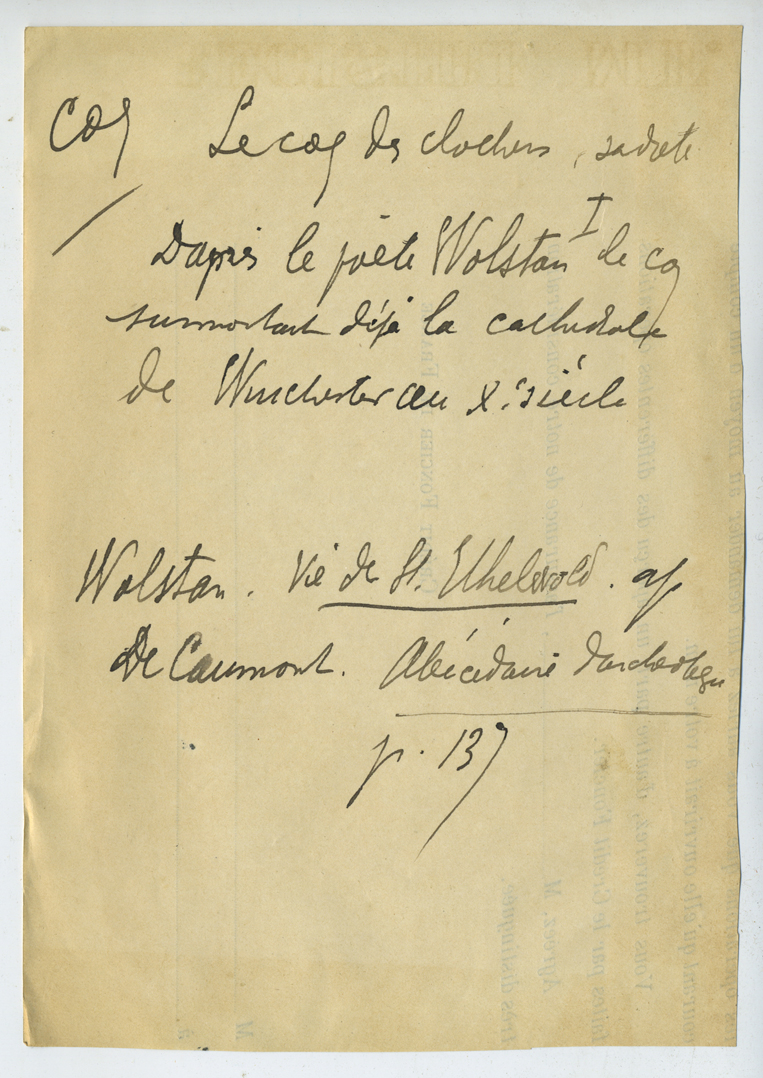 Coq Le coq des clochers, sa date
D'après le poète Wolstan I le coq
surmontait déjà la cathédrale
de Winchester au X.e siècle
Wolstan. Vie de St. Ethelwold. ap
De Caumont. Abécédaire d'archéologie
p. 137